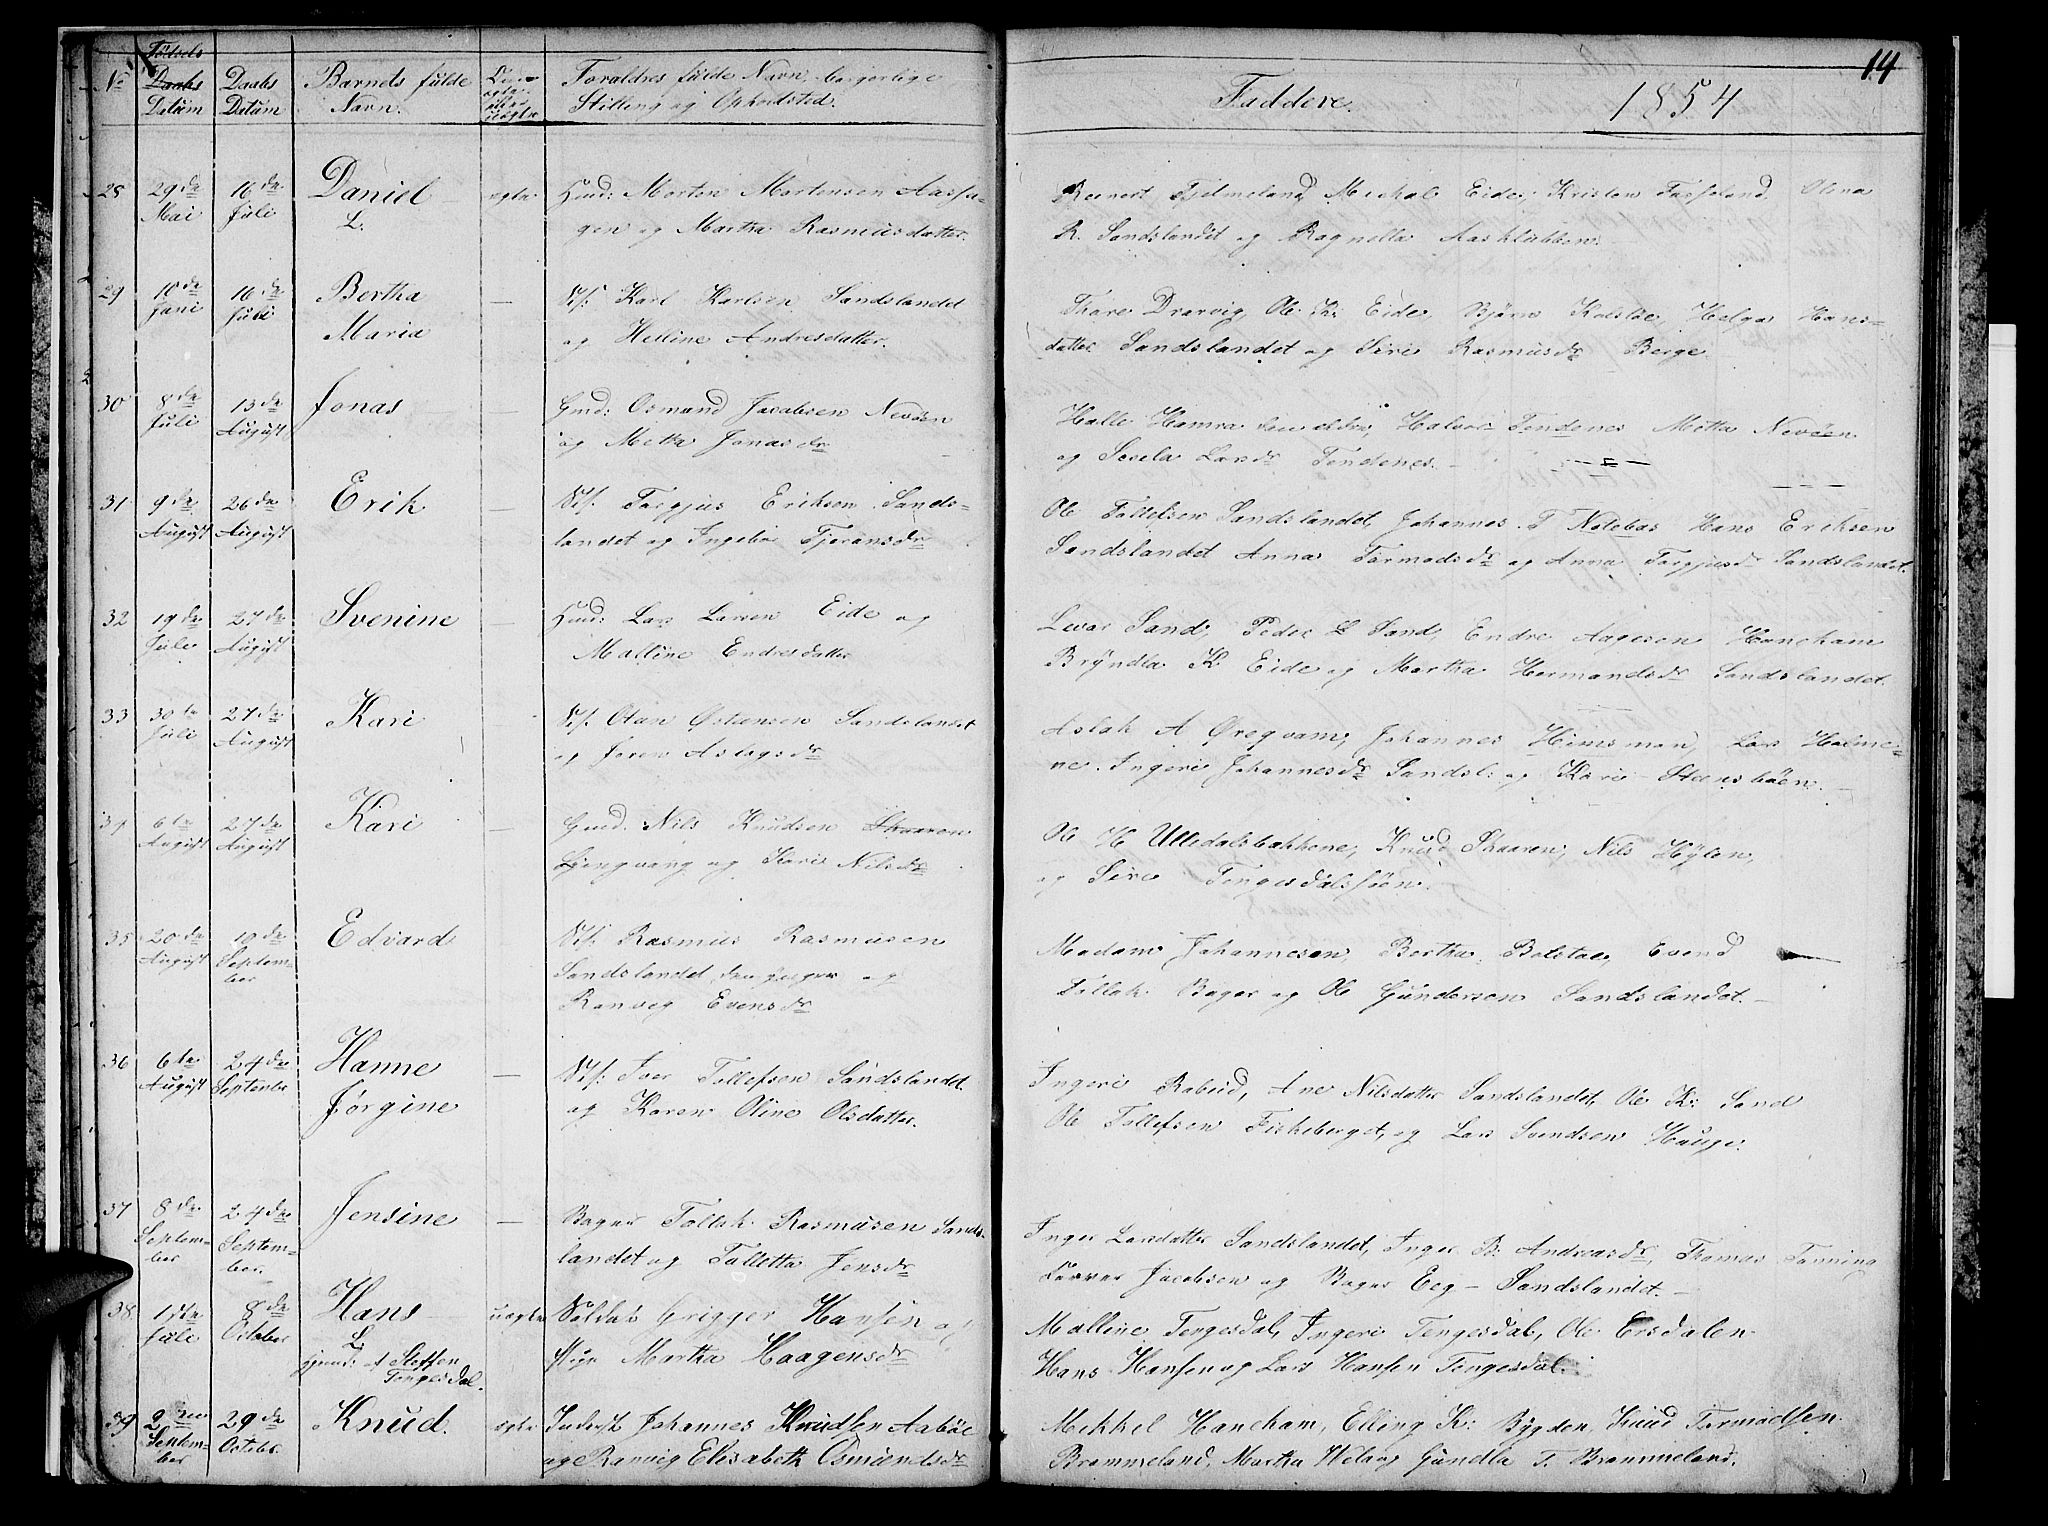 14
No
Fødsels
Daabs
Datum
Daabs
Datum
Barnets fulde
Navn.
Foraldres fulde Navn, borgerlige
Stilling og Opholdsted.
Faddere.
1854
28 29de Mai 16de Juli Daniel L. ægte Huus: Morten Mortensen
og Martha Rasmusdatter.
Reinert Tjelmeland, Mickal Eide, Kristen Olena
R. Sandslandet og Ragnella
29 10de Juni 16de Juli Bertha Maria — Karl Karlsen Sandslandet
og Helline Andresdatter.
Thore Drarvig, Ole K: Eide, Bjørn Kolstøe, Helga Hans-
datter Sandslandet og Siri Rasmusdr Berge
30 8de Juli 13de August Jonas — Gmd: Osmund Jacobsen Nevøen
og Metta Jonasdr
Halle Hamra Halvor Tendenes Mitta Nevøen
og Larsdr Tendenes.
31 9de August 26de August Erik — Torgjus Eriksen Sands-
landet og Ingebor Tjeransdr
Ole Tollefsen Sandslandet, Johannes T Nalebas Hans Eriksen
Sandslandet Anna Tormodsdr og Anna Torgjusdr Sandslandet.
32 19de Juli 27de August Svenine — Huus: Lars Larsen Eide og
Malline Endresdatter
Levar Sand, Peder Sand, Endre Aagesen Haneham
Bryndla K. Eide og Martha Hermandsdr Sandslandet.
33 30te Juli 27de August Kari — Østensen Sandslandet
og Joren Aslagsdr
Aslak A Øregvam, Johannes Himsman, Lars Holme-
ne. Ingeri Johannesdr Sandsl: og Kari Steensbøen.
34 6te August 27de August Kari — Gmd. Nils Knudsen Skaaren
og Kari Nilsdr
Ole H Ulledalsbakkene, Knud Skaaren, Nils Høylen,
og Siri
35 20de August 10de Septem-
ber Edvard Rasmus Rasmusen
Sandslandet den yngre og
Ranveg Evensdr
Madam Johannesen Bertha Bolstøe, Evend
Tollak Bager og Ole Gundersen Sandslandet.
36 6te August 24de Septenbr Hanne Jørgine — Iver Tollefsen Sandslandet
og Karen Oline Olsdatter.
Ingeri Rabud, Ane Nilsdatter Sandslandet, Ole K: Sand
Ole Tollefsen Fiskeberget, og Lars Svendsen Hauge.
37 8de Septem-
ber 24de Septem-
ber. Jensine — Bager Tollak Rasmusen Sands-
landet og Talletta Jensdr
Inger Larsdatter Sandslandet, Inger B: Andreasdr, Thomas Tanning
Jacobsen og Bager Eeg – Sandslandet.
38 Juli 8de October Hans L Hjemd: Af Steffen
Tengesdal. uægte Soldat Grigger Hansen og
Pige Martha Haagensdr
Malline Tengesdal, Ingeri Tengesdal, Ole Ersdalen
Hans Hansen og Lars Hansen Tengesdal.
39 2den Septem-
ber 29de October Knud. ægte Inderst Johannes Knudsen Aabøe
og Ranvig Elisabeth Osmundsdr
Mekkel Haneham, Elling K: Bygden, Knud Tormodsen
Brommeland, Martha Hela og Gunella T. Brommeland.